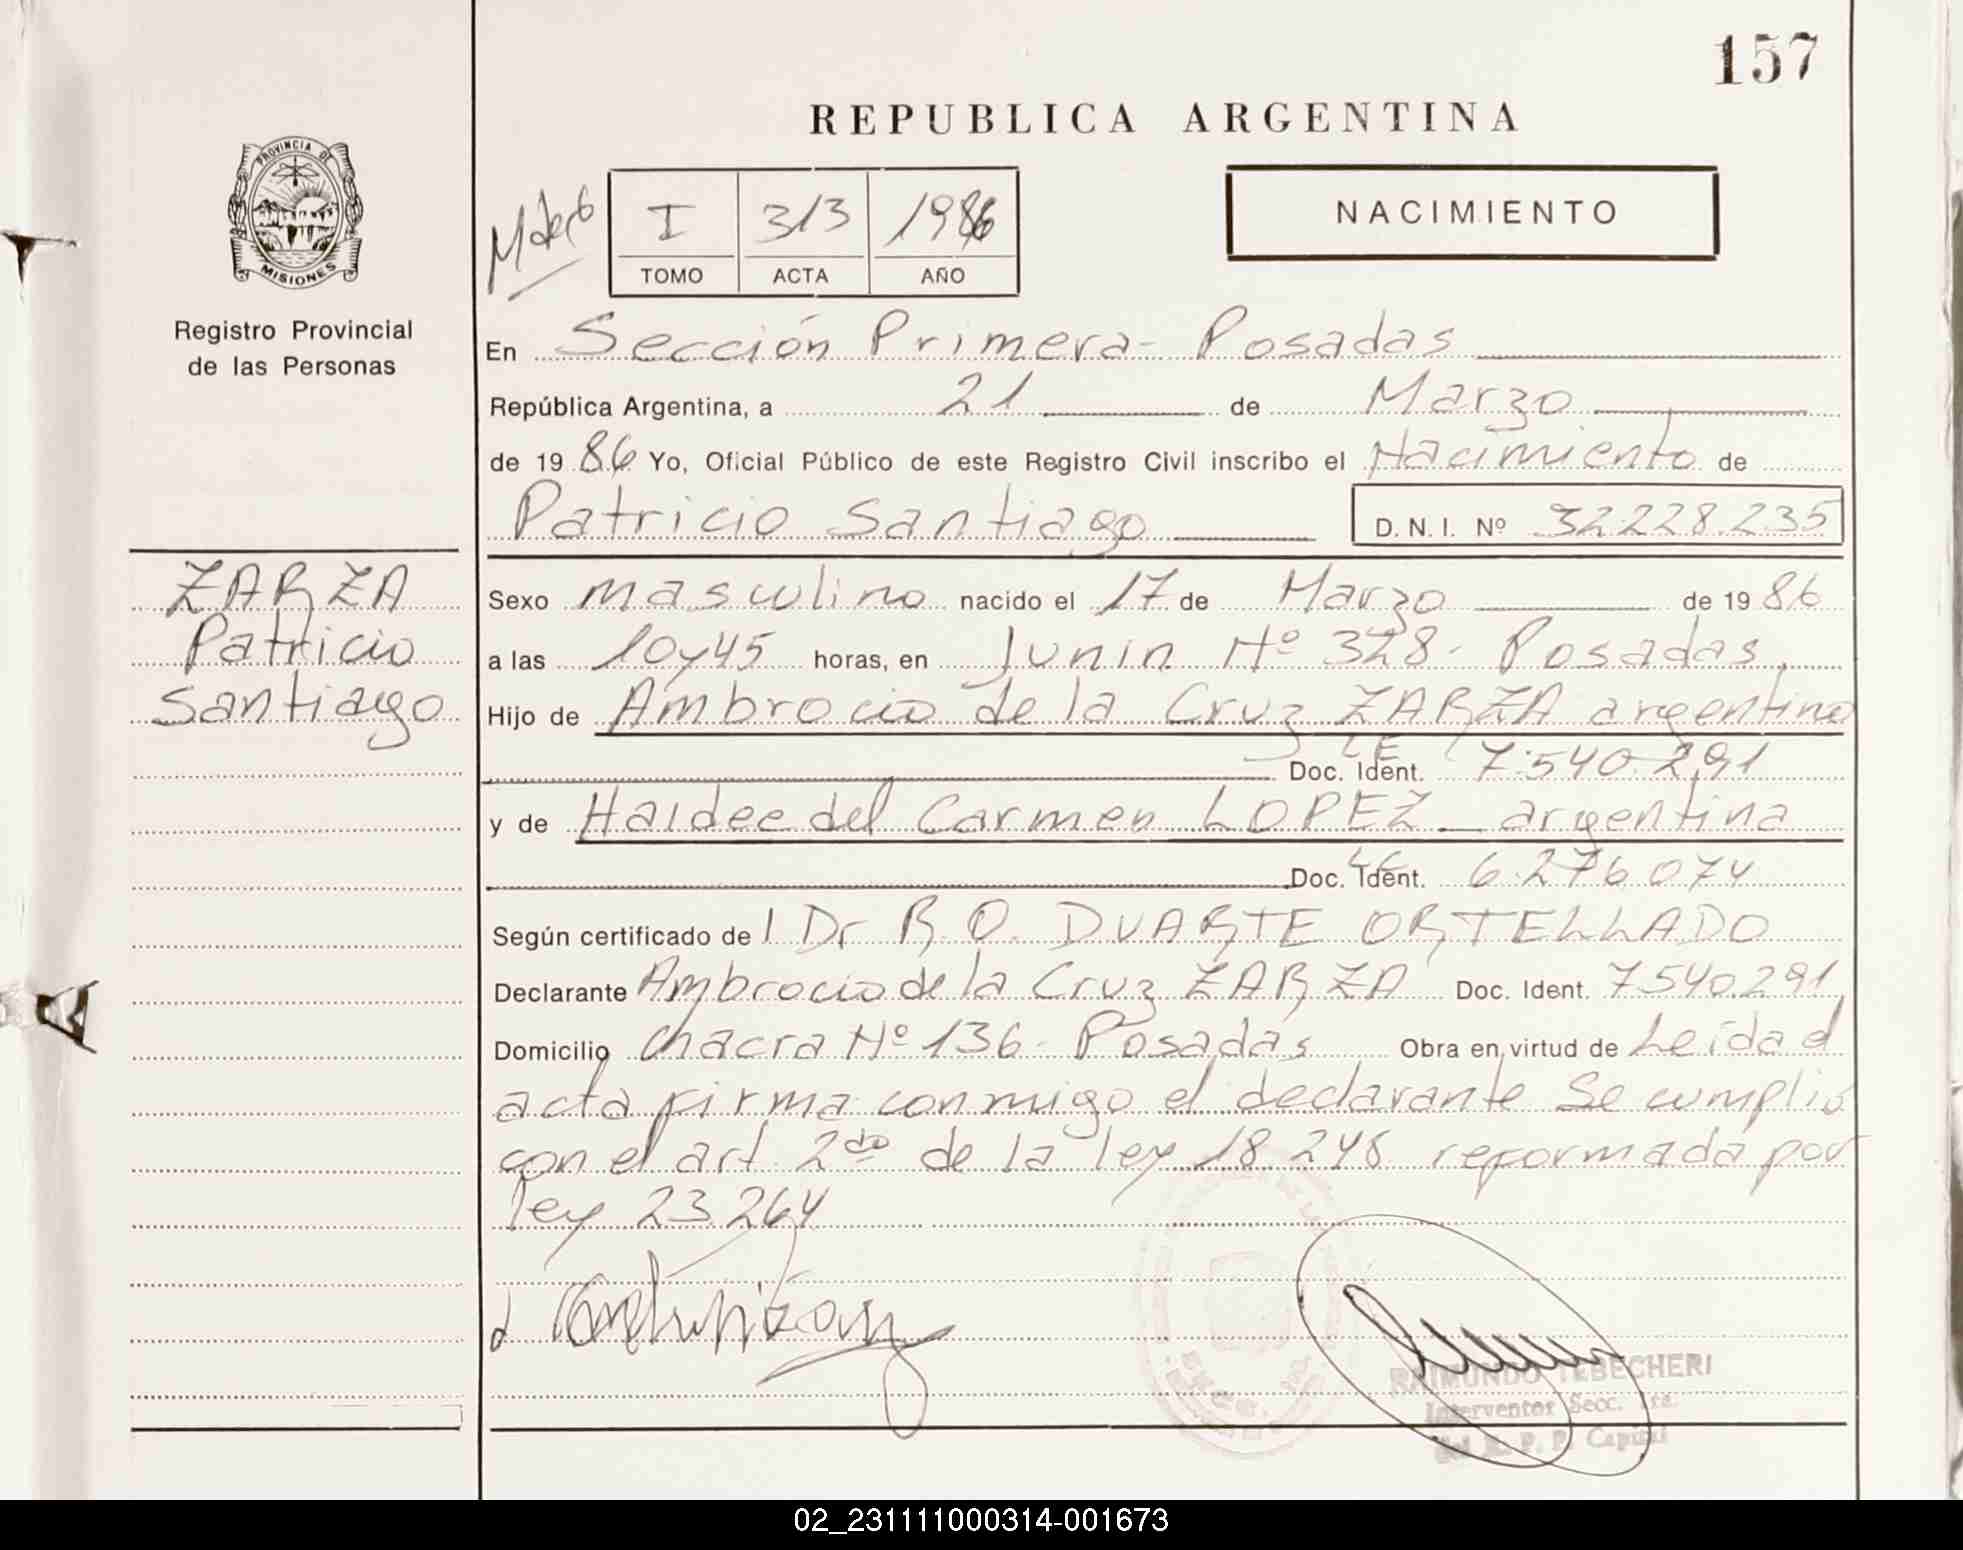 157
REPUBLICA ARGENTINA
PROVINCIA DE
MISIONES
Registro Provincial
de las Personas
I 313 1986
TOMO ACTA AÑO
NACIMIENTO
En Sección Primera - Posadas
República Argentina, a 21 de Marzo
de 1986 Yo, Oficial Público de este Registro Civil inscribo el Nacimiento de
Patricio Santiago D.N.I. Nº 32.228.235
ZARZA
Patricio
Santiago
Sexo masculino nacido el 17 de Marzo de 1986
a las 10y45 horas, en Junin Nº 328 - Posadas,
Hijo de Ambrocio de la Cruz ZARZA argentino
Doc. Ident. LE 7.540.291
y de Haidee del Carmen LOPEZ - argentina
Doc. Ident. LC 6.276.074
Según certificado de l Dr R O. DUARTE ORTELLADO
Declarante Ambrocio de la Cruz ZARZA Doc. Ident. 7540.291
Domicilio Chacra Nº 136 - Posadas Obra en virtud de Leída el
acta firma conmigo el declarante Se cumplio
con el art 2do de la ley 18.248 reformada por
ley 23.264
RAIMUNDO TEBECHERI
Interventor Secc. 1ra.
del R. P. P. Capital
02_231111000314-001673